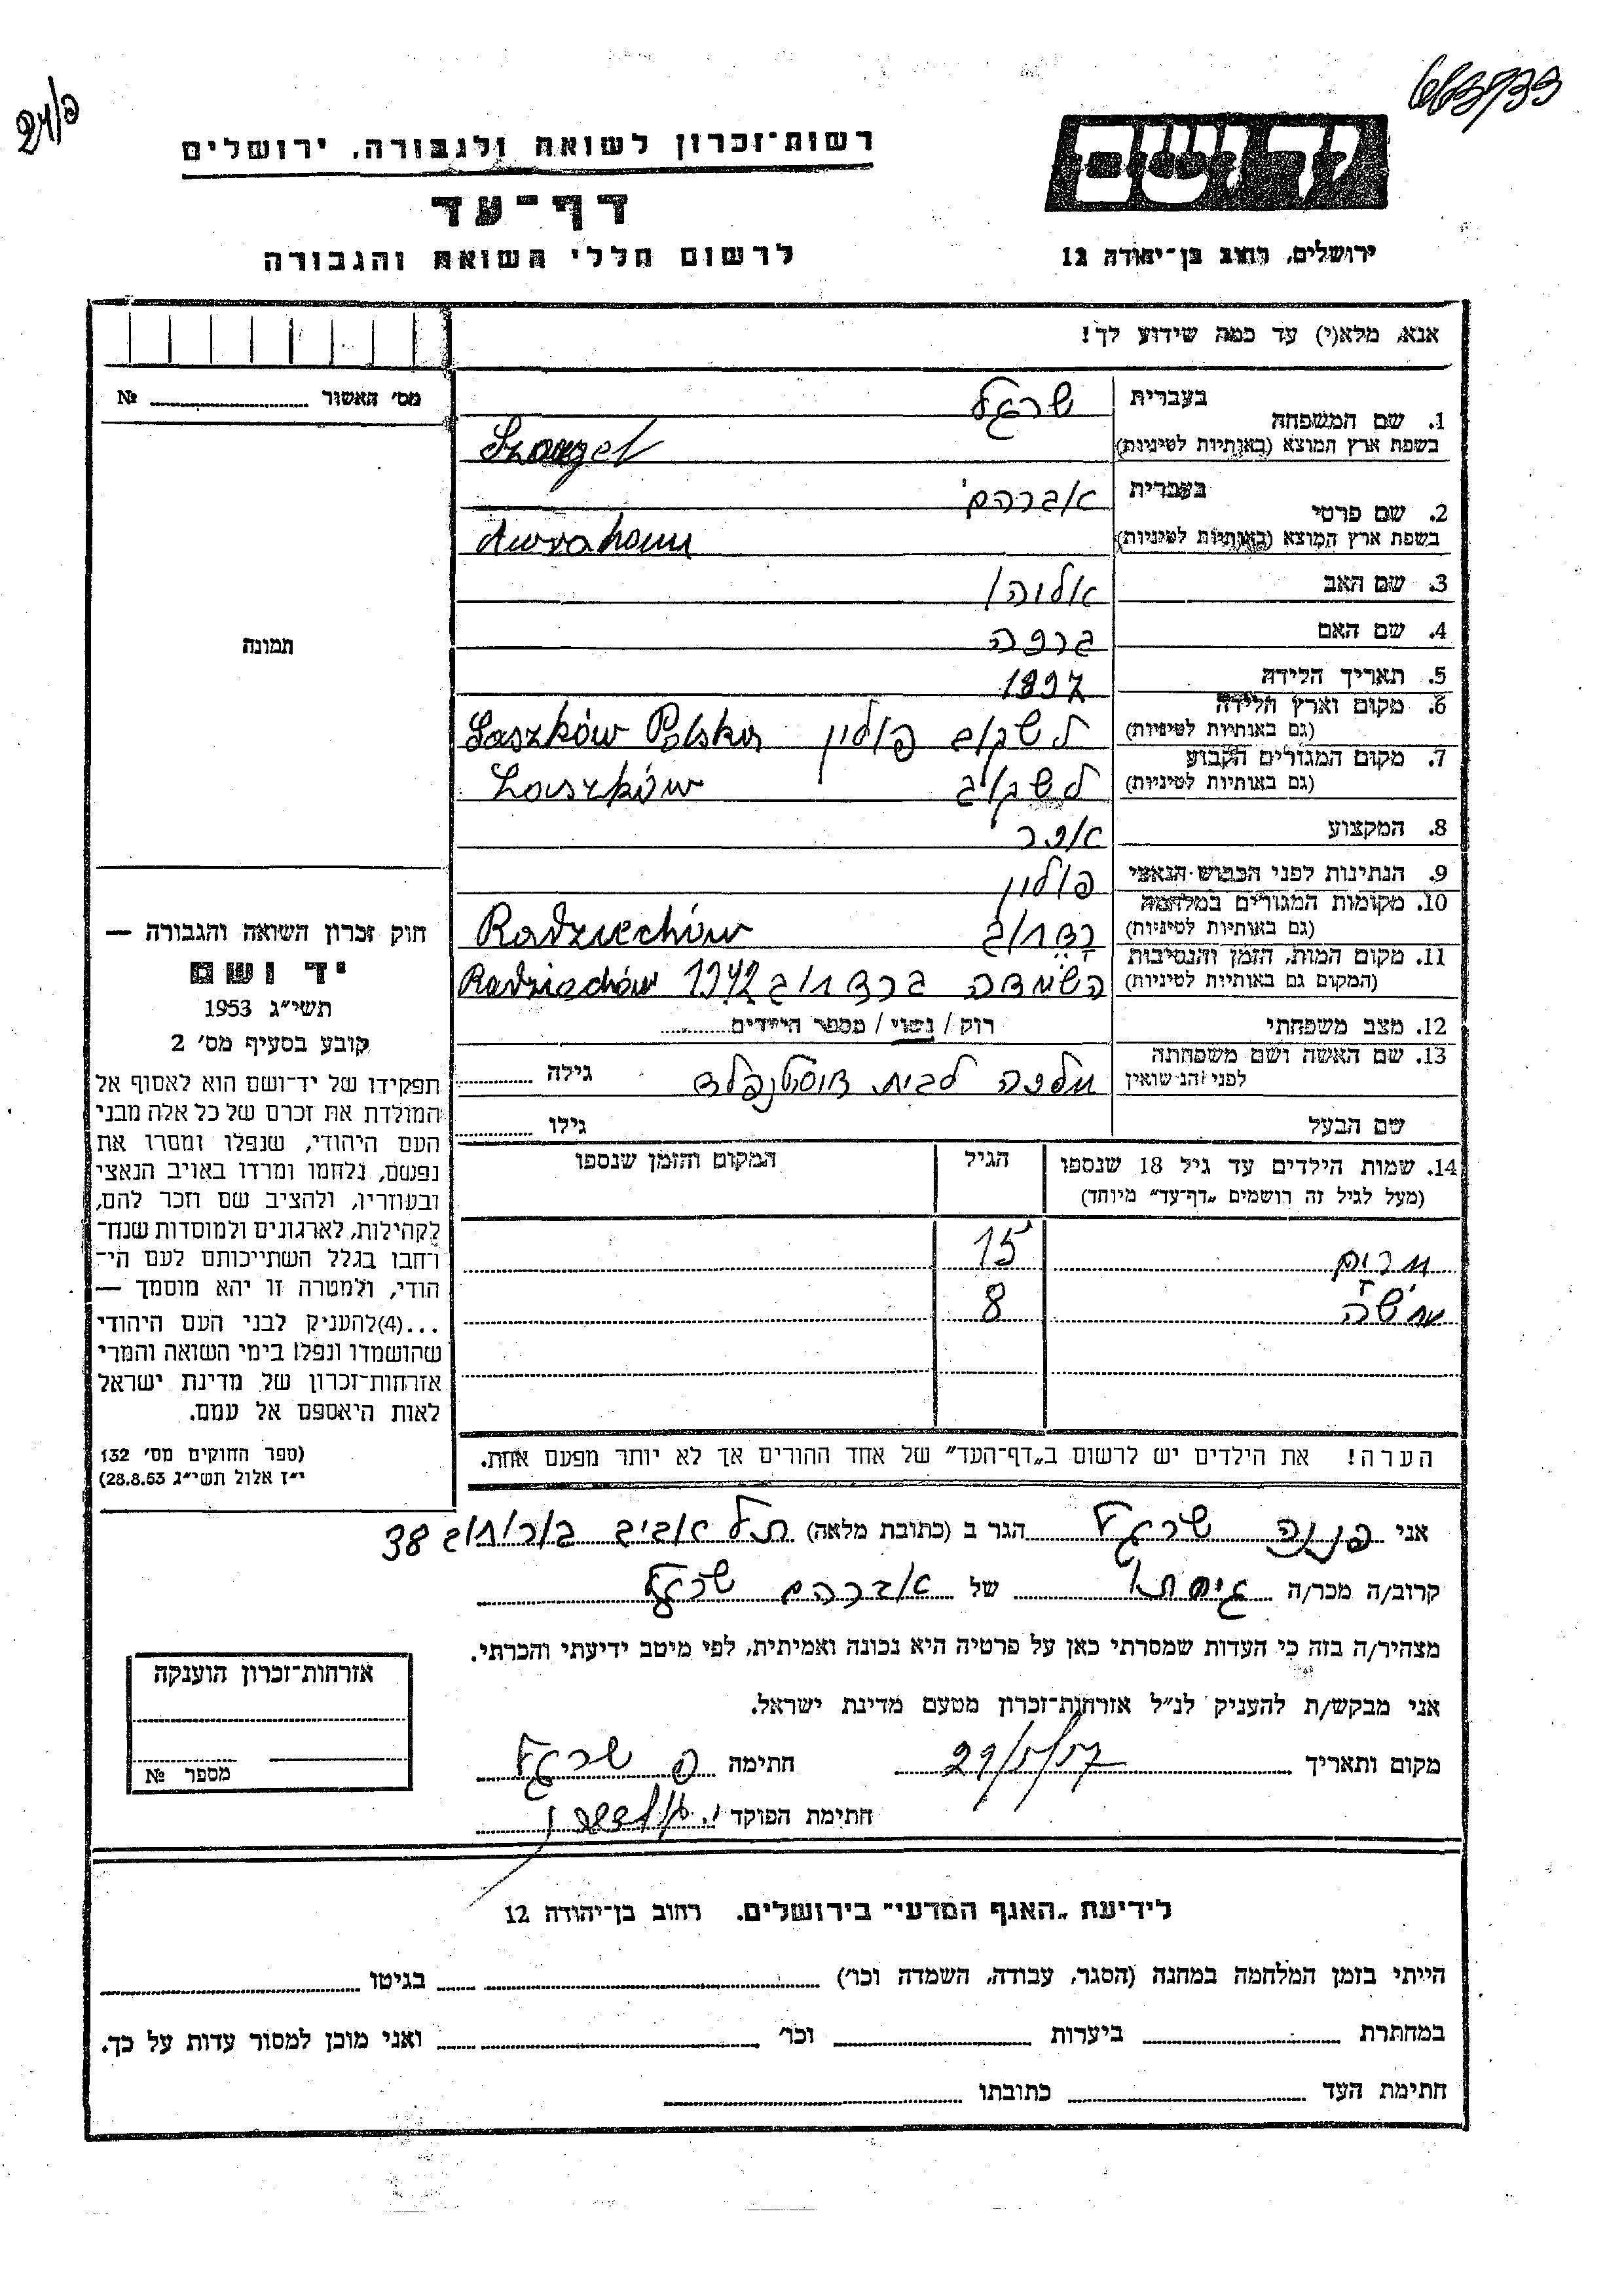 רשות־זכרון לשואה ולגבורה, ירושלים
דף־עד
לרשום חללי השואה והגבורה
ידושם
ירושלים, רחוב בן־יהודה 12
אנא, מלא(י) עד כמה שידוע לך!
מס' האשור № 
תמונה
1. שם המשפחה בעברית שרגל
בשפת ארץ המוצא (באותיות לטיניות)
2. שם פרטי בעברית אברהם
בשפת ארץ המוצא (באותיות לטיניות) Awraham
3. שם האב אליהו
4. שם האם
5. תאריך הלידה 1897
6. מקום וארץ הלידה (גם באותיות לטיניות) לשקוב פולין Laszków Polska
7. מקום המגורים הקבוע (גם באותיות לטיניות) לשקוב Laszków
8. המקצוע
9. הנתינות לפני הכבוש הנאצי פולין
10. מקומות המגורים במלחמה (גם באותיות לטיניות) רדחוב Radziechów
11. מקום המות, הזמן והנסיבות (המקום גם באותיות לטיניות) השמדה ברדחוב 1942 Radziechów
12. מצב משפחתי רוק / נשוי / מספר הילדים
13. שם האשה ושם משפחתה לפני הנשואין לבית גילה
שם הבעל גילו
14. שמות הילדים עד גיל 18 שנספו הגיל המקום והזמן שנספו
(מעל לגיל זה רושמים „דף־עד” מיוחד)
מרים 15
משה 8
הערה! את הילדים יש לרשום ב„דף־העד” של אחד ההורים אך לא יותר מפעם אחת.
חוק זכרון השואה והגבורה —
יד ושם
תשי״ג 1953
קובע בסעיף מס' 2
תפקידו של יד־ושם הוא לאסוף אל
המולדת את זכרם של כל אלה מבני
העם היהודי, שנפלו ומסרו את
נפשם, נלחמו ומרדו באויב הנאצי
ובעוזריו, ולהציב שם וזכר להם,
לקהילות, לארגונים ולמוסדות שנח־
רחבו בגלל השתייכותם לעם הי־
הודי, ולמטרה זו יהא מוסמך —
...(4)להעניק לבני העם היהודי
שהושמדו ונפלו בימי השואה והמרי
אזרחות־זכרון של מדינת ישראל
לאות היאספם אל עמם.
(ספר החוקים מס' 132
י״ז אלול תשי״ג 28.8.53)
אני פנינה שרגל הגר ב (כתובת מלאה) תל אביב 38
קרוב/ה מכר/ה גיסתו של אברהם שרגל
מצהיר/ה בזה כי העדות שמסרתי כאן על פרטיה היא נכונה ואמיתית, לפי מיטב ידיעתי והכרתי.
אני מבקש/ת להעניק לנ״ל אזרחות־זכרון מטעם מדינת ישראל.
מקום ותאריך חתימה פ שרגל
חתימת הפוקד
אזרחות־זכרון הוענקה
מספר №
לידיעת „האגף המדעי” בירושלים. רחוב בן־יהודה 12
הייתי בזמן המלחמה במחנה (הסגר, עבודה, השמדה וכו') בגיטו
במחתרת ביערות וכו' ואני מוכן למסור עדות על כך.
חתימת העד כתובתו